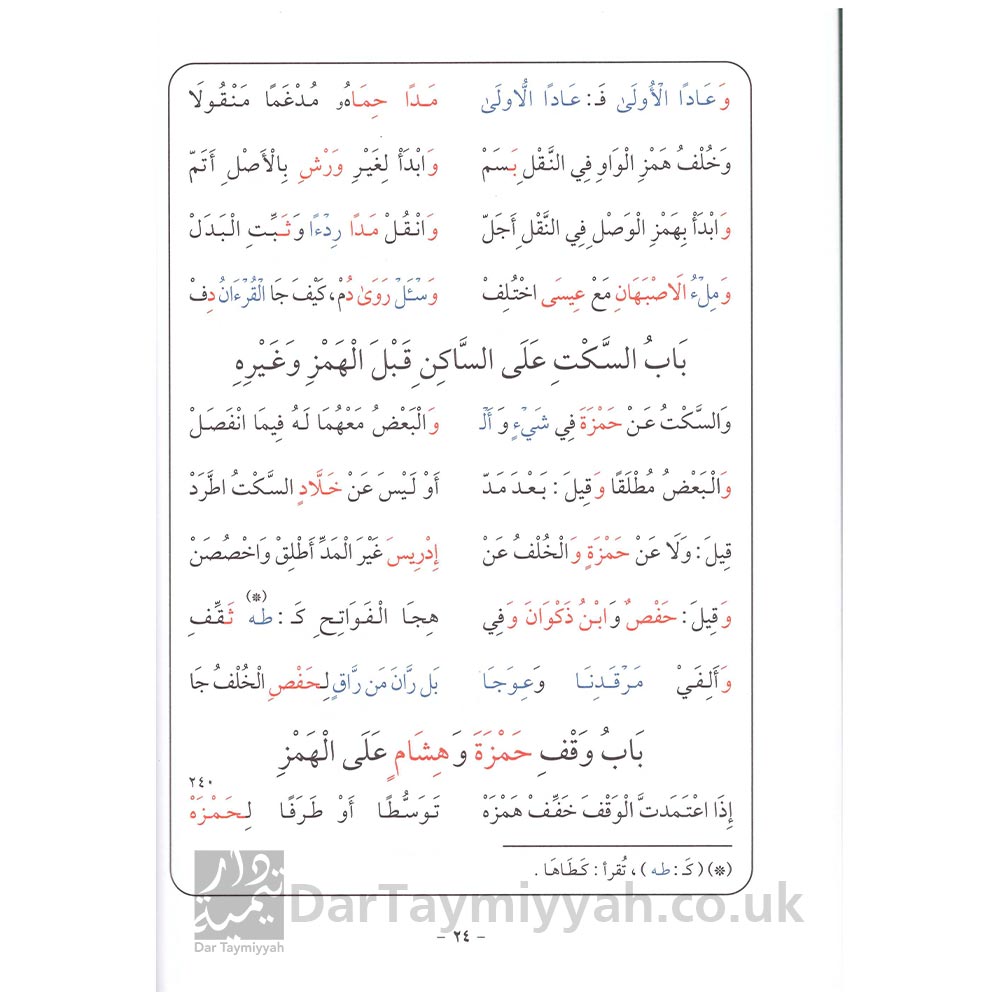 وَعَادًا الْأُولَىٰ فَـ: عَادًا الُّاولَىٰ مَدًا حِمَاهُۥ مُدْغَمًا مَنْقُولَا
وَخُلْفُ هَمْزِ الْوَاوِ فِي النَّقْلِ بَسَمْ وَابْدَأْ لِغَيْرِ وَرْشٍ بِالْأَصْلِ أَتَمّ
وَابْدَأْ بِهَمْزِ الْوَصْلِ فِي النَّقْلِ أَجَلّ وَانْقُلْ مَدًا رِدْءًا وَثَبِّتِ الْبَدَلْ
وَمِلْءُ الَاصْبَهَانِ مَعْ عِيسَى اخْتُلِفْ وَسْـَٔلْ رَوَىٰ دُمْ، كَيْفَ جَا الْقُرْءَانُ دِفْ
بَابُ السَّكْتِ عَلَى السَّاكِنِ قَبْلَ الْهَمْزِ وَغَيْرِهِ
وَالسَّكْتُ عَنْ حَمْزَةَ فِي شَيْءٍ وَأَلْ وَالْبَعْضُ مَعْهُمَا لَهُ فِيمَا انْفَصَلْ
وَالْبَعْضُ مُطْلَقًا وَقِيلَ: بَعْدَ مَدّ أَوْ لَيْسَ عَنْ خَلَّادٍ السَّكْتُ اطَّرَدْ
قِيلَ: وَلَا عَنْ حَمْزَةٍ وَالْخُلْفُ عَنْ إِدْرِيسَ غَيْرَ الْمَدِّ أَطْلِقْ وَاخْصُصَنْ
وَقِيلَ: حَفْصٌ وَابْنُ ذَكْوَانَ وَفِي هِجَا الْفَوَاتِحِ كَـ: طه (*) ثَقِّفِ
وَأَلِفَيْ مَرْقَدِنَا وَعِوَجَا بَل رَّانَ مَن رَّاقٍ لِحَفْصِ الْخُلْفُ جَا
بَابُ وَقْفِ حَمْزَةَ وَهِشَامٍ عَلَى الْهَمْزِ
٢٤٠
إِذَا اعْتَمَدتَّ الْوَقْفَ خَفِّفْ هَمْزَهْ تَوَسُّطًا أَوْ طَرَفًا لِحَمْزَهْ
(*) (كَـ: طه)، تُقرأ: كَطَاهَا.
دار تيمية
Dar Taymiyyah
DarTaymiyyah.co.uk
- ٢٤ -